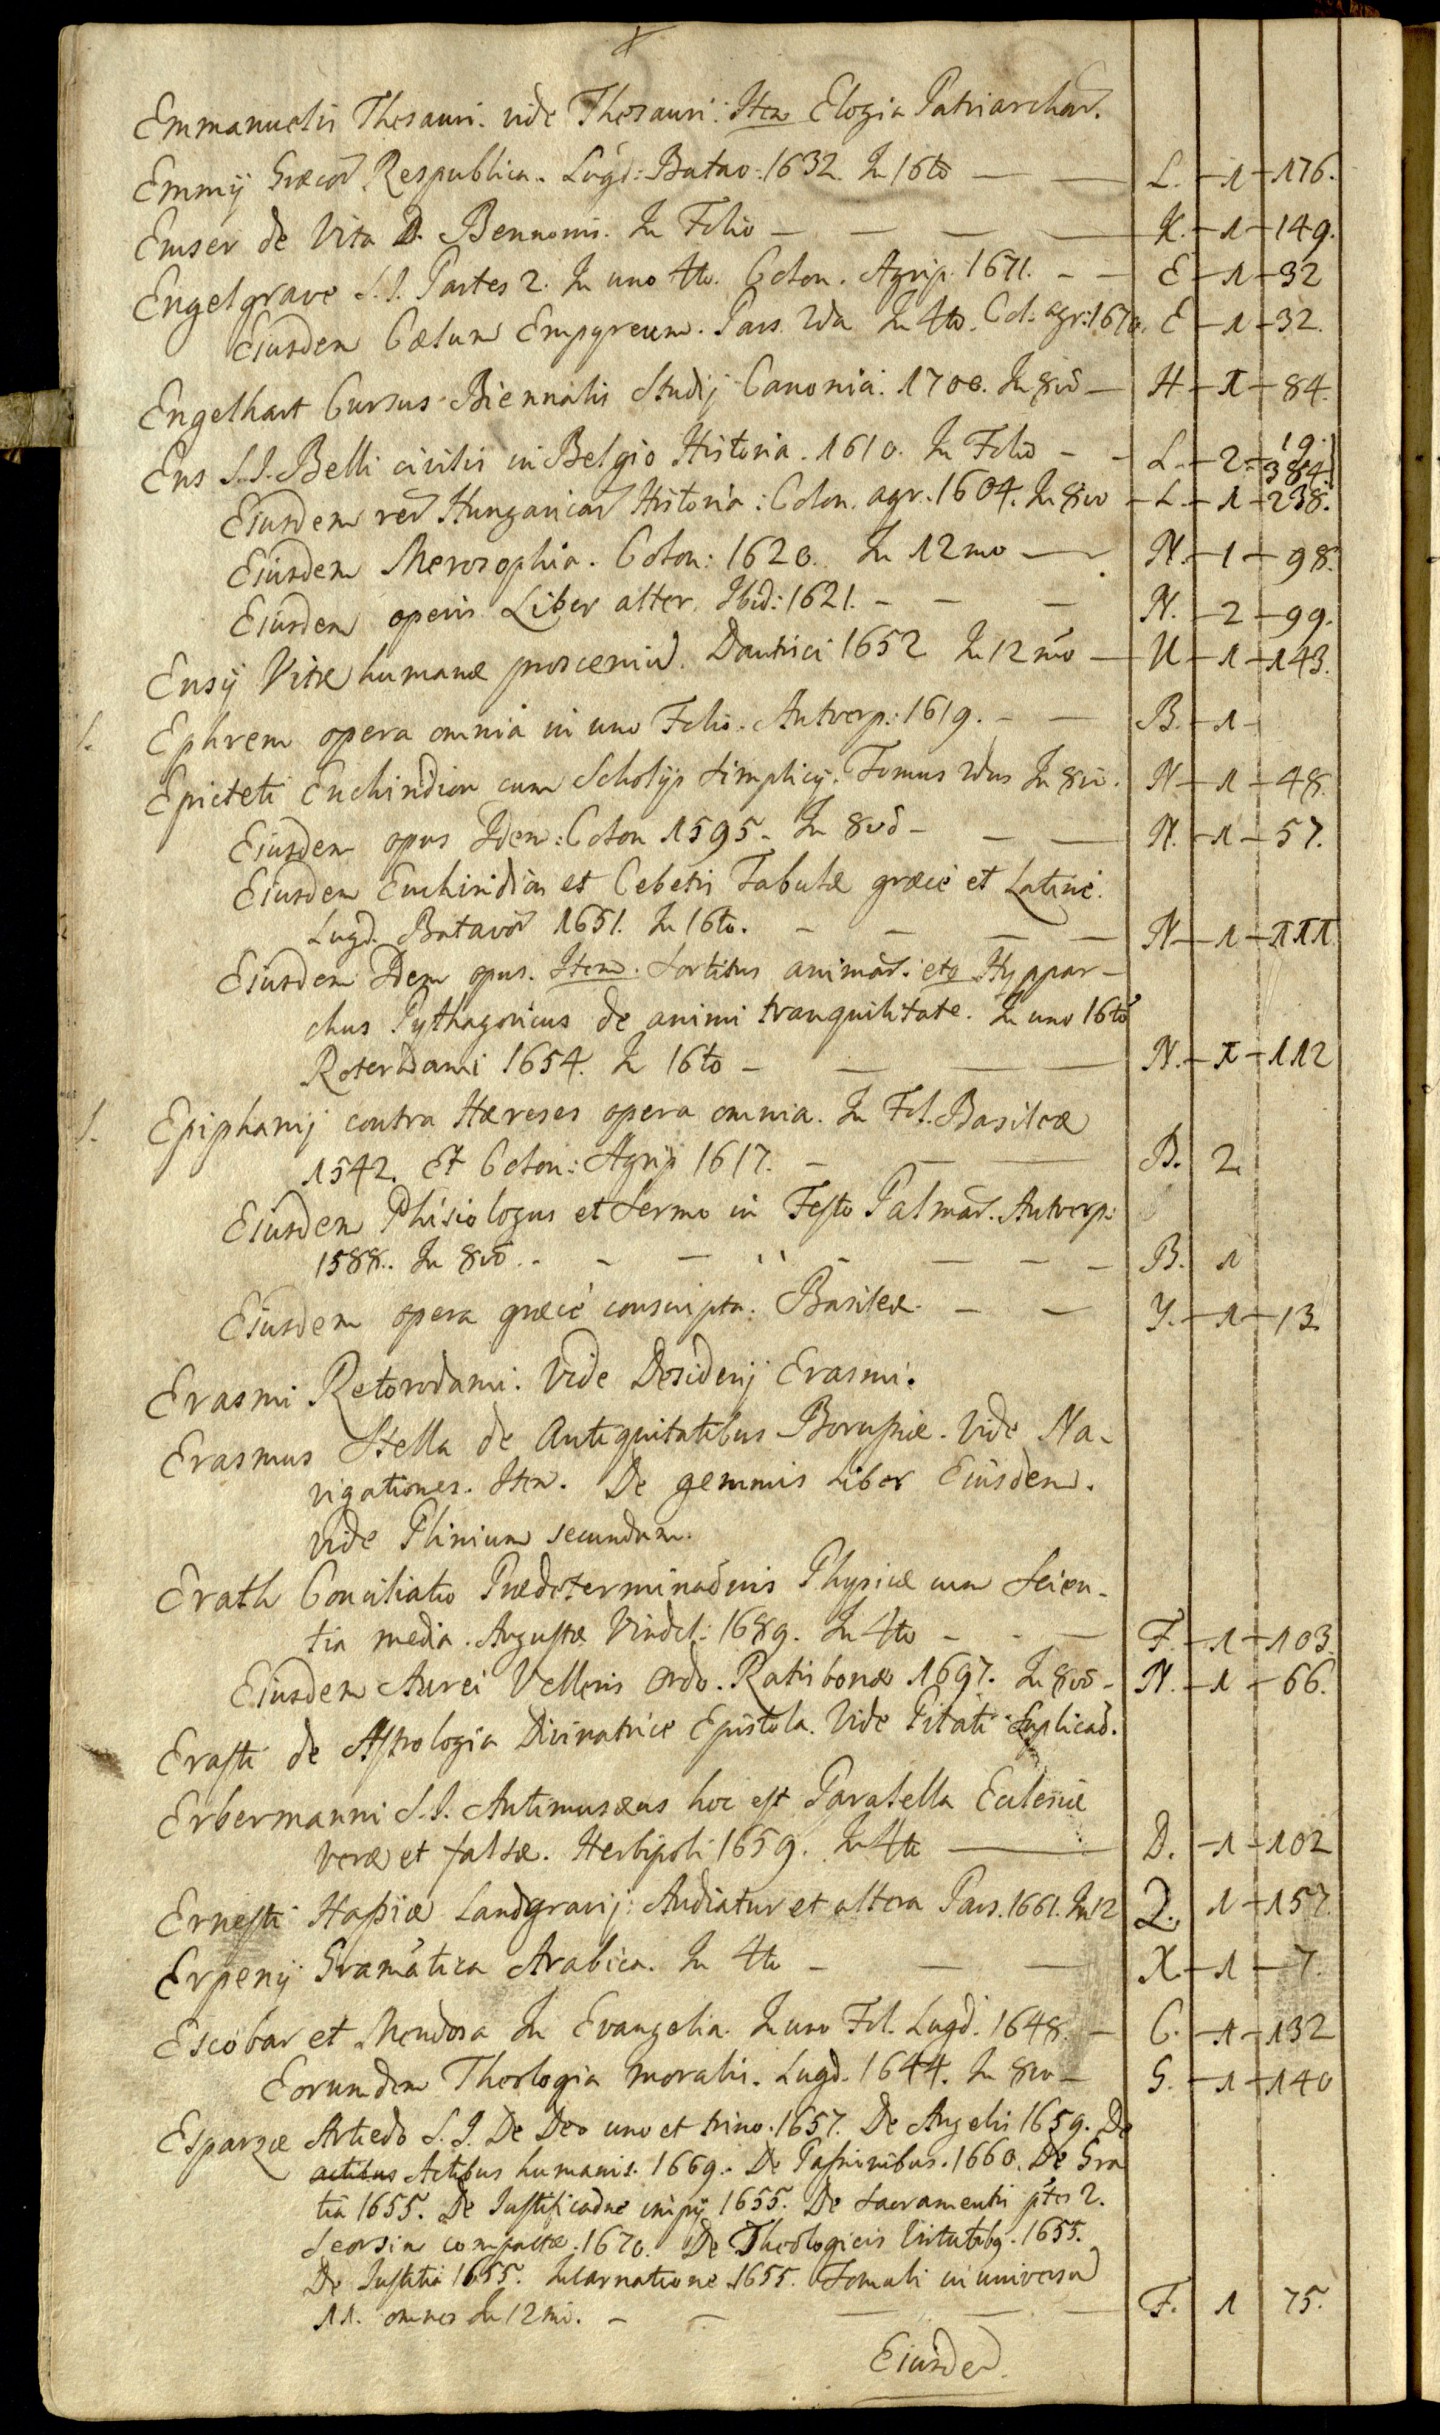 Emmanuelis Thesauri. vide Thesauri: Item Elogia Patriarchar.
Emmij Græcor Respublica. Lugd: Batav: 1632. In 16to — — L. – 1 – 176.
Emser de Vita D. Bennonis. In Folio — — — — K. – 1 – 149.
Engelgrave S.I. Partes 2. In uno 4to. Colon. Agrip. 1671. – – E – 1 – 32
Eiusdem Cælum Empyreum. Pars 2da In 4to. Col: agr: 1670. E – 1 – 32.
Engelhart Cursus Biennalis Studij Canonici. 1700. In 8vo – H – 1 – 84.
Ens S.I. Belli civilis in Belgio Historia. 1610. In Folio – – L. – 2 – 384
Eiusdem rer Hungaricar Historia: Colon. agr. 1604. In 8vo – L – 1 – 238.
Eiusdem Morosophia. Colon: 1620. In 12mo — N. – 1 – 98.
Eiusdem operis Liber alter. Ibid: 1621. – – — N. – 2 – 99.
Ensij Vitæ humanæ proscenium. Dantisci 1652 In 12mo — N – 1 – 143.
S. Ephrem opera omnia in uno Folio. Antverp: 1619. – — B. – 1 –
Epicteti Enchiridion cum Scholijs Simplicij. Tomus 2dus In 8vo. N – 1 – 48.
Eiusdem opus Idem: Colon 1595. In 8vo – — — N. – 1 – 57.
Eiusdem Enchiridion et Cebetis Tabula græcè et Latinè.
Lugd. Batavor 1651. In 16to. – — — — N – 1 – 111
Eiusdem Idem opus. Item. Sortitus animar: etq Hyppar–
chus Pythagoricus de animi tranquilitate. In uno 16to
Roterdami 1654. In 16to – — — — N. – 1 – 112
S. Epiphanij contra Hæreses opera omnia. In Fol. Basileæ
1542. Et Colon: Agrip 1617. – — — B. 2.
Eiusdem Phisiologus et Sermo in Festo Palmar. Antverp:
1588. In 8vo. – – — – — – – B. 1
Eiusdem opera græcè conscripta. Basileæ. – — Y. – 1 – 13
Erasmi Retorodami. Vide Desiderij Erasmi.
Erasmus Stella de Antiquitatibus Borussiæ. Vide Na–
vigationes. Item. De gemmis Liber Eiusdem.
vide Plinium secundum.
Erath Conciliatio Prædeterminaõnis Physicæ cum Scien–
tia media. Augustæ Vindel: 1689. In 4to – – — F. – 1 – 103.
Eiusdem Aurei Velleris Ordo. Ratisbonæ 1697. In 8vo – N. – 1 – 66.
Erasti de Astrologia Divinatrice Epistola. Vide Pitati Explicaõ.
Erbermanni S.I. Antimusæus hoc est Paralella Eclesiæ
veræ et falsæ. Herbipoli 1659. In 4to — D. – 1 – 102
Ernesti Hassiæ Landgravij: Audiatur et altera Pars. 1661. In 12 Q. 1 – 157.
Erpenij Gramãtica Arabica. In 4to – — — X – 1 – 7.
Escobar et Mendosa In Evangelia. In uno Fol. Lugd. 1648. – C. – 1 – 132
Eorumdem Theologia moralis. Lugd. 1644. In 8vo – G. – 1 – 140
Esparzæ Artiedo S.I. De Deo uno et trino. 1657. De Angelis 1659. De
actibus Actibus humanis. 1669. De Passionibus. 1660. De Gra
tia 1655. De Iustificaõne impij 1655. De Sacramentis ptes 2.
Seorsim compactæ. 1670. De Theologicis Virtutibq. 1655.
De Iustitia 1655. Incarnatione 1655. Tomuli in universum
11. omnes In 12mo. – — — — F. 1 75.
Eiusdem